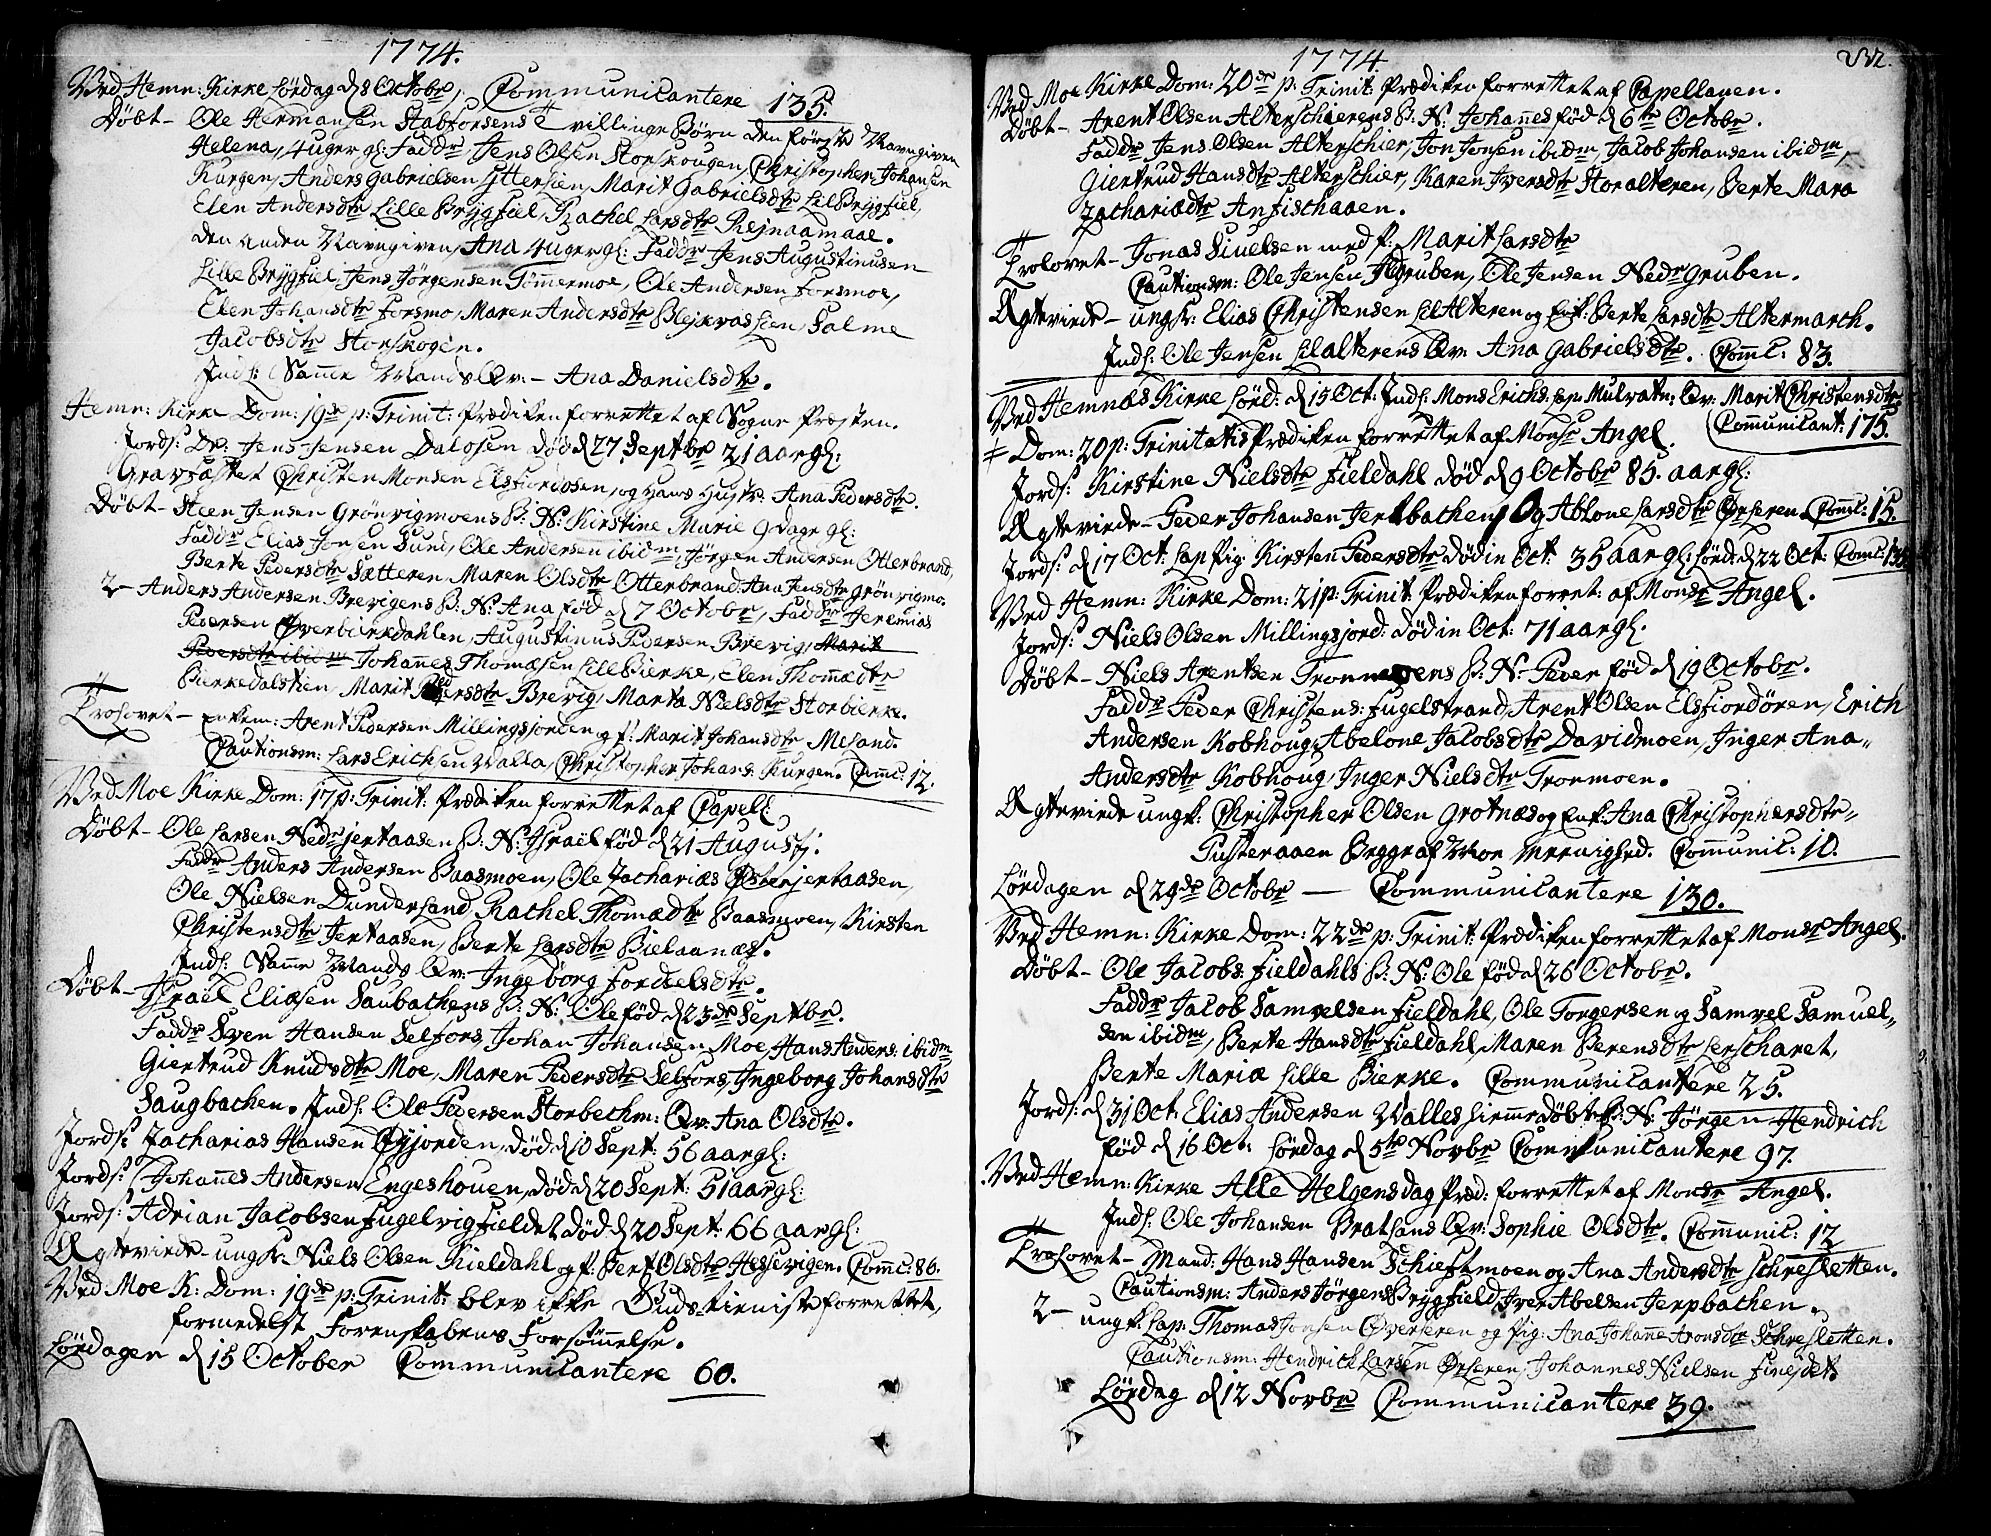 1774.
Ved Hemn: Kirke Lördag d 8 Octobr, Communicantere 135.
Döbt - Ole Hermansen Stabforsens Tvillinge Börn den förste Navngiven
Helena, 4 uger gl: Faddr Jens Olsen Storskougen, Christopher Johansen
Kurgen, Anders Gabrielsen Yttersien, Marit Gabrielsdtr Lil Brygfiel,
Elen Andersdtr Lille Brygfiel, Rachel Larsdtr Rejnaamaae.
den anden Navngiven, Ana 4 uger gl: Faddr Jens Augustinusen
Lille Brygfiel, Jens Jörgensen Tömmermoe, Ole Andersen Forsmoe,
Elen Johansdtr Forsmo, Maren Andersdtr Blejkvaslien, Salme
Jacobsdtr Storskogen.
Inds: Samme Mands Qv: - Ana Danielsdtr.
Hemn: Kirke Dom: 19de p: Trinit: Prædiken forrettet af Sogne Præsten.
Jords: Dr: Jens Jensen Dalosen död d 27 Septbr 21 aar gl:
Gravfæstet Christen Monsen Elsfiordosen, og Hans Hustr: Ana Pedersdtr.
Döbt - Steen Jensen Grönvigmoens B: N: Kirstine Marie 9 dage gl:
Faddr Elias Jonsen Sund, Ole Andersen ibidm, Jörgen Andersen Otterbrand,
Berte Pedersdtr Sætteren, Maren Olsdtr Otterbrand, Ana Jensdtr Grönvigmo.
2 - Anders Andersen Brevigens B: N: Ana född 7 Octobr, Faddr Jeremias
Pedersen Överbierkdahlen, Augustinus Pedersen Brevig, Marit
Pedersdtr ibidm Johannes Thomæsen Lille Bierke, Elen Thomædtr
Bierkedalstien, Marit Pedersdtr Brevig, Marta Nielsdtr Storbierke.
Trolovet - Enkem: Arent Pedersen Millingsjorden og f: Marit Johansdtr Mesand.
Cautionsm: Lars Erichsen Valla, Christopher Johans: Kurgen. Comc: 12.
Ved Moe Kirke Dom: 17 p: Trinit: Prædiken forrettet af Capel:
Döbt - Ole Larsen Nedrjertaasen B: N: Israël föd d 21 Augusti.
Faddr Anders Andersen Baasmoen, Ole Zacharias Österjertaasen,
Ole Nielsen Dunderland, Rachel Thomædtr Baasmoen, Kirsten
Christensdtr Jertaasen, Berte Larsdtr Bielaanæs.
Inds: Samme Mands Qv: Ingeborg Forckelsdtr.
Döbt - Israël Eliæsen Saubachens B: N: Ole föd d 23de Septbr.
Faddr Sven Hansen Selfors, Johan Johansen Moe, Hans Anders: ibidm
Giertrud Knudsdtr Moe, Maren Pedersdtr Selfors, Ingeborg Johansdtr
Saugbachen. Inds: Ole Pedersen Storbechm: Qv: Ana Olsdtr.
Jords: Zacharias Hansen Öyjorden, död d 10 Sept: 56 aar gl:
Jords: Johannes Andersen Engeshouen, död d 20 Sept: 51 aar gl:
Jords: Adrian Jacobsen Fugelvigfieldet död d 20 Sept: 66 aar gl:
Ægtevirde - ungk: Niels Olsen Kieldahl og f: Bert Olsdtr Hessevigen. Comc: 86.
Ved Moe K: Dom: 19de p: Trinit: blev ikke Gudstieniste forrettet,
formedelst Forenskabens Forsömmelse.
Lördagen d 15 October Communicantere 60.
1774
232.
Ved Moe Kirke Dom: 20de p: Trinit: Prædiken forrettet af Capellanen.
Döbt - Arent Olsen Alterschierens B: N: Johannes föd d 6te Octobr.
Faddr Jens Olsen Alterschier, Jon Jensen ibidm, Jacob Johansen ibidm,
Giertrud Hansdtr Alterschier, Karen Iversdtr Storalteren, Berte Mara
Zachariædtr Anfischaaen.
Trolovet - Jonas Siuelsen med f: Marit Larsdtr
Cautionsm: Ole Jensen Ildgruben, Ole Jensen Nedrgruben.
Ægtevirde - ungk: Elias Christensen Lilalteren og Enk: Berte Larsdtr Altermarch.
Inds: Ole Jensen Lilalterens Qv: Ana Gabrielsdtr. Comc: 83.
Ved Hemnæs Kirke Lörd: d 15 Oct: Inds: Mons Erichs: Lap: Mulvatn: Qv: Marit Christensdtr
Dom: 20 p: Trinitatis Prædiken forrettet af Monsr Angel. Communicant: 175.
Jords: Kirstine Nielsdtr Fieldahl död d 9 Octobr 85. aar gl:
Ægtevirde - Peder Johansen Jerkbachen, Og Ablone Larsdtr Örseren. Comc: 15.
Jords: d 17 Oct: Lap Pig: Kirsten Pedersdtr död in Oct: 35 aar gl: Lörd: d 22 Oct: Comc: 135
Ved Hemn: Kirke Dom: 21 p: Trinit: Prædiken forret: af Monsr Angel.
Jords: Niels Olsen Millingsjord: död in Oct: 71 aar gl.
Döbt - Niels Arentsen Tronmoens B: N: Peder föd d 19 Octobr.
Faddr Peder Christens: Fugelstrand, Arent Olsen Elsfiordören, Erich
Andersen Kobhoug, Abelone Jacobsdtr Davidmoen, Inger Ana
Andersdtr Kobhoug, Inger Nielsdtr Tronmoen.
Ægtevirde ungk: Christopher Olsen Grotnæs og Enk: Ana Christophersdtr
Tusteraaen Begge af Moe Menighed. Communic: 10.
Lördagen d 29de Octobr — Communicantere 130.
Ved Hemn: Kirke Dom: 22de p: Trinit: Prædiken forrettet af Monsr Angel.
Döbt - Ole Jacobs: Fieldahls B: N: Ole föd d 26 Octobr.
Faddr Jacob Samvelsen Fieldahl, Ole Torgersen og Samvel Samuel-
sen ibidm, Berte Hansdtr Fieldahl, Maren Berensdtr Lerscharet,
Berte Mariæ Lille Bierke. Communicantere 25.
Jords: d 31 Oct: Elias Andersen Valles Hiemmedöbte B: N: Jörgen Hendrich
föd d 16 Oct: Lördag d 5te Novbr Communicantere 97.
Ved Hemn: Kirke Alle Helgens dag Præd: forrettet af Monsr Angel.
Inds: Ole Johansen Bratlands Qv: Sophie Olsdtr. Communic: 12
Trolovet - Mand: Hans Hansen Schieftmoen og Ana Andersdtr Schresletten.
Cautionsm: Anders Jörgens: Brygfield, Iver Abelsen Jerpbachen.
2 - ungk: Lap: Thomas Jonsen Överleren og Pig: Ana Johanne Aronsdtr Schresletten.
Cautionsm: Hendrich Larsen Örseren, Johannes Nielsen Finejdet.
Lördag d 12 Novbr Communicantere 39.